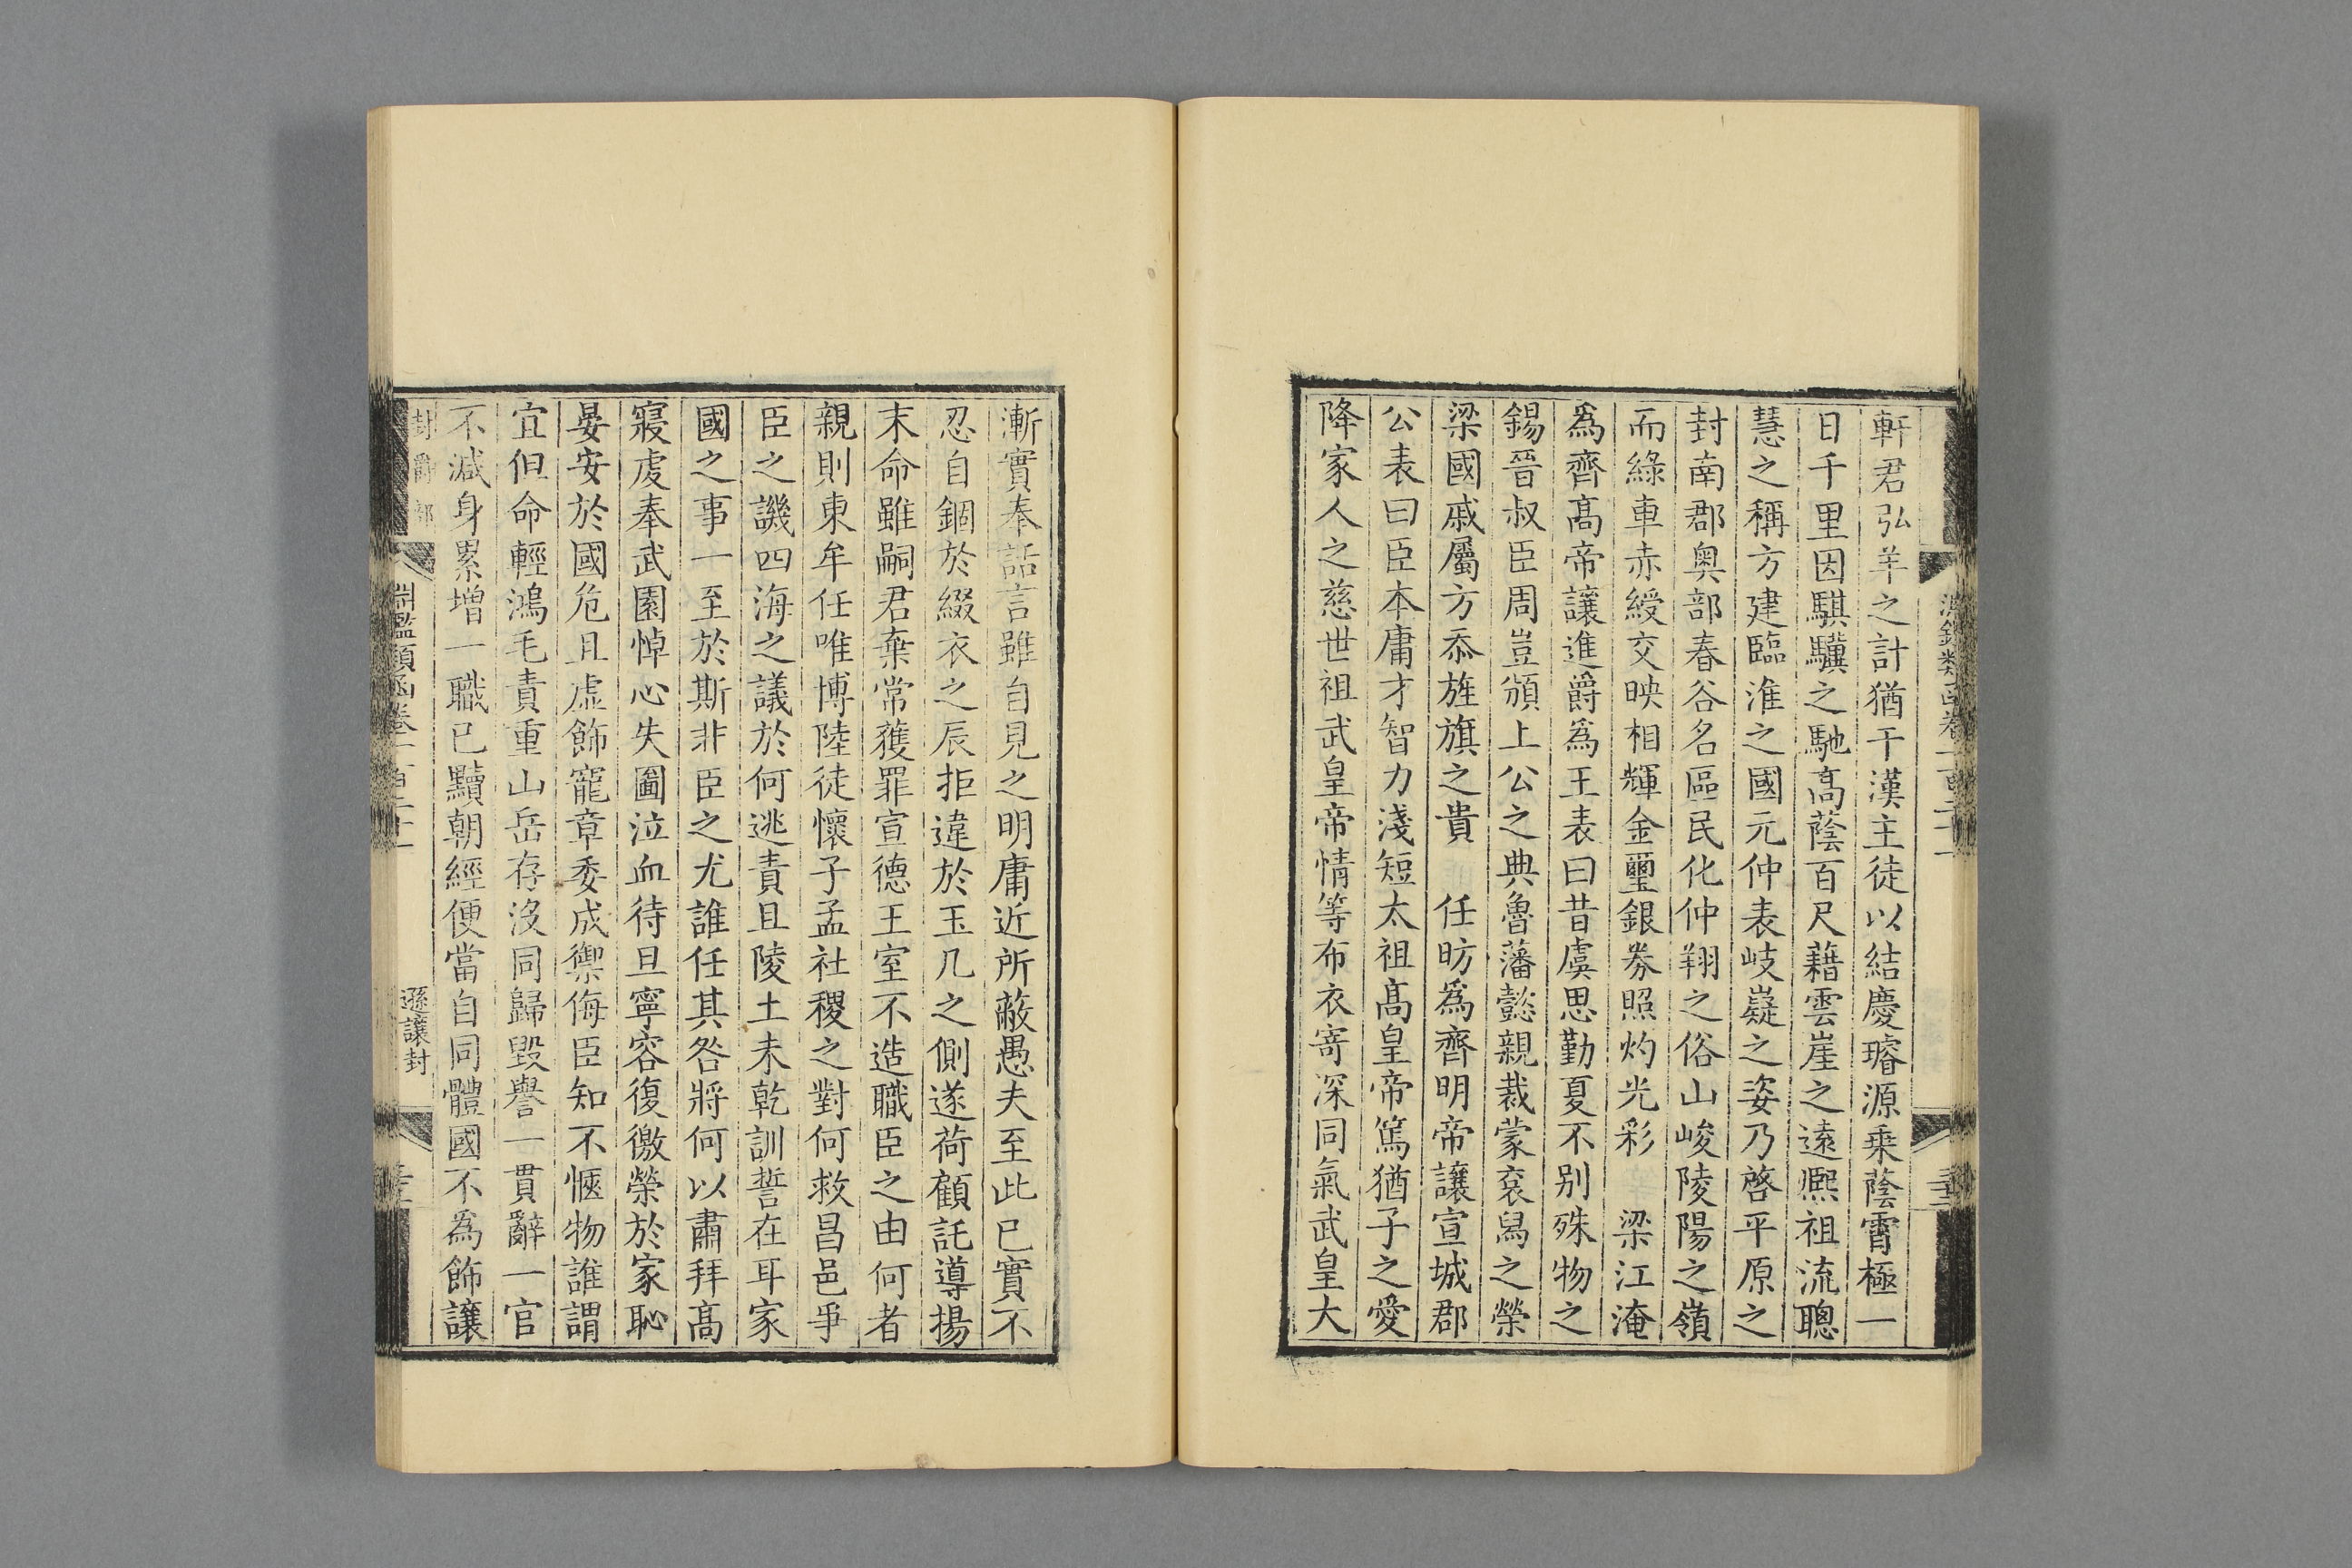 軒君弘羊之計猶干漢主徒以結慶璿源乗蔭霄極一
日千里因騏驥之馳髙蔭百尺藉雲崖之遠熈祖流聰
慧之稱方建臨淮之國元仲表岐嶷之姿乃啓平原之
封南郡奥部春谷名區民化仲翔之俗山峻陵陽之嶺
而綠車赤綬交映相輝金璽銀劵照灼光彩　梁江淹
爲齊髙帝讓進爵爲王表曰昔虞思勤夏不别殊物之
錫晉叔臣周豈頒上公之典魯藩懿親裁蒙衮舄之榮
梁國戚屬方忝旌旗之貴　任昉爲齊明帝讓宣城郡
公表曰臣本庸才智力淺短太祖髙皇帝篤猶子之愛
降家人之慈世祖武皇帝情等布衣寄深同氣武皇大
漸實奉話言雖自見之明庸近所蔽愚夫至此已實不
忍自錮於綴衣之辰拒違於玉几之側遂荷顧託導揚
末命雖嗣君棄常獲罪宣德王室不造職臣之由何者
親則東牟任唯博陸徒懷子孟社稷之對何救昌邑爭
臣之譏四海之議於何逃責且陵土未乾訓誓在耳家
國之事一至於斯非臣之尤誰任其咎將何以肅拜髙
寢虔奉武園悼心失圖泣血待旦寧容復徼榮於家恥
晏安於國危且虛飾寵章委成禦侮臣知不愜物誰謂
宜但命輕鴻毛責重山岳存沒同歸毀譽一貫辭一官
不減身累增一職已黷朝經便當自同體國不為飾讓
封爵部
淵鑑類函卷一百二十一
遜讓封